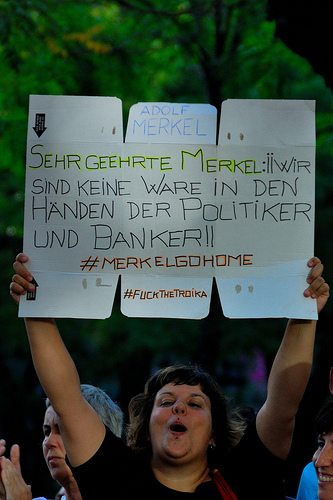 ADOLF
MERKEL
SEHR GEEHRTE MERKEL:¡¡WIR
SIND KEINE WARE IN DEN
HÄNDEN DER POLITIKER
UND BANKER!!
#MERKELGOHOME
#FUCKTHETROIKA